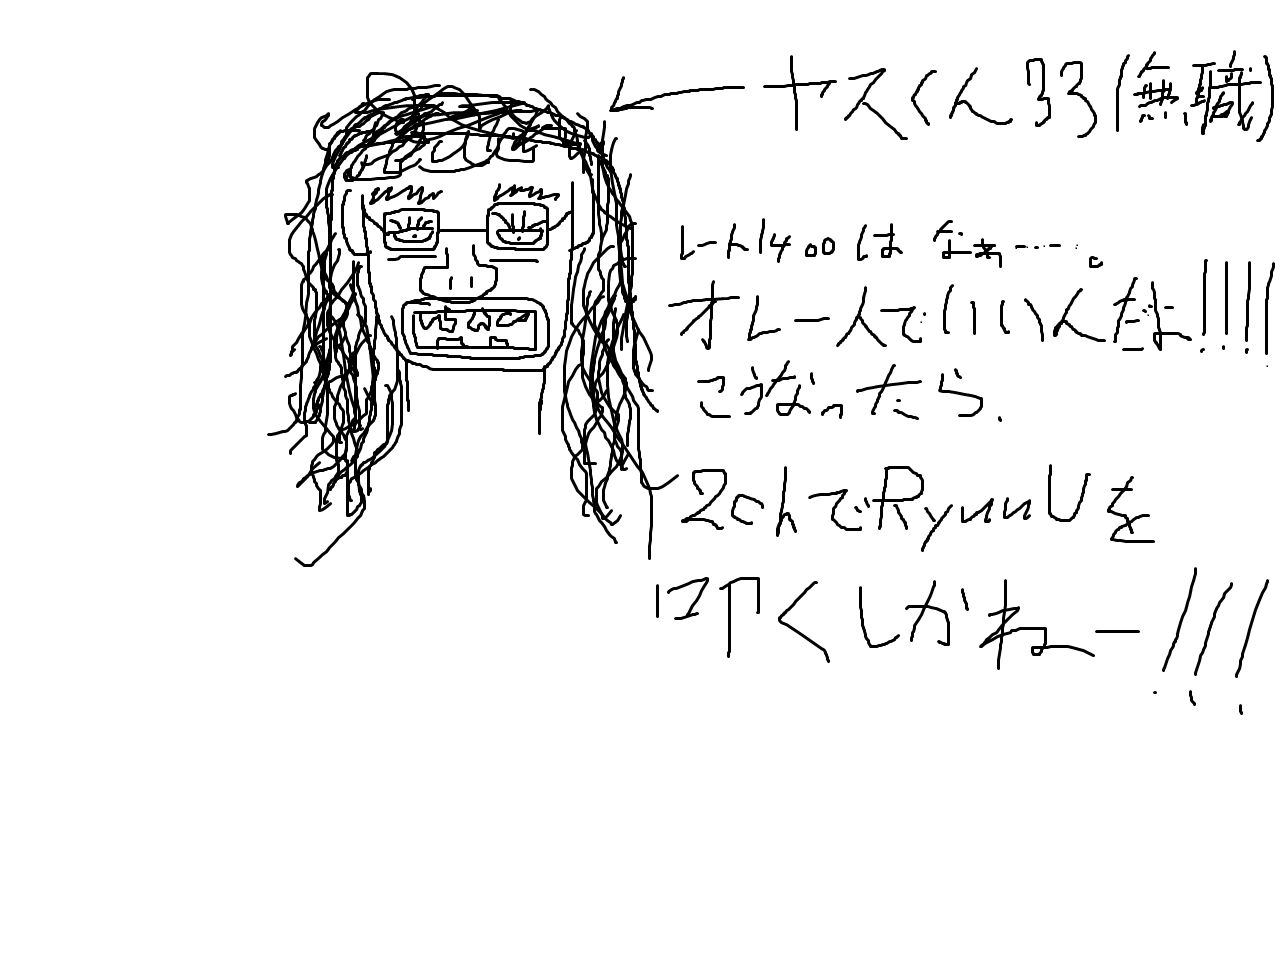 ヤスくん33(無職)
レート1400はなぁ……。
オレ一人でいいんだよ!!!!
こうなったら、
2chでRyuuUを
叩くしかねー!!!